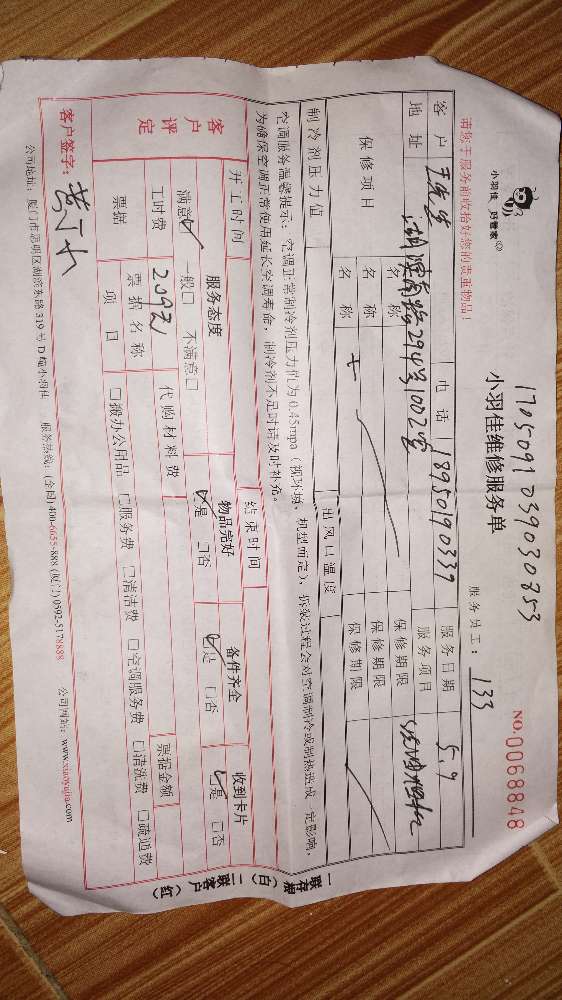 小羽佳 好管家®
1705091039030853
小羽佳维修服务单
NO.0068848
请您于服务前收拾好您的贵重物品!
服务员工: 133
客户 电话 18950190339 服务日期 5.9
地址 湖滨南路294号1002室 服务项目
保修项目 名称 保修期限
名称 保修期限
名称 保修期限
制冷剂压力值 出风口温度
空调服务温馨提示:空调正常制冷剂压力值为0.45mpa(视环境、机型而定),拆装过程会对空调制冷或制热造成一定影响,
为确保空调正常使用延长空调寿命,制冷剂不足时请及时补充。
开工时间 结束时间
客户评定 服务态度 物品完好 备件齐全 收到卡片
满意☑ 一般□ 不满意□ ☑是 □否 ☑是 □否 ☑是 □否
工时费 209元 代购材料费
票据 票据名称 票据金额
项目 □办公用品 □服务费 □清洁费 □空调服务费 □清洗费 □疏通费
客户签字:
公司地址:厦门市思明区湖滨东路319号D幢 服务热线:(全国)400-6655-888 (厦门)0592-5178888 公司网站:www.xiaoyujia.com
一联存根(白) 二联客户(红)